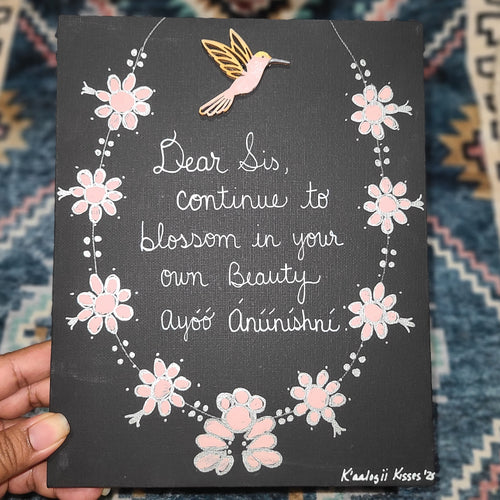 Dear Sis,
continue to
blossom in your
own Beauty
Ayóó Ániíníshní.
K'aalogii Kisses '25